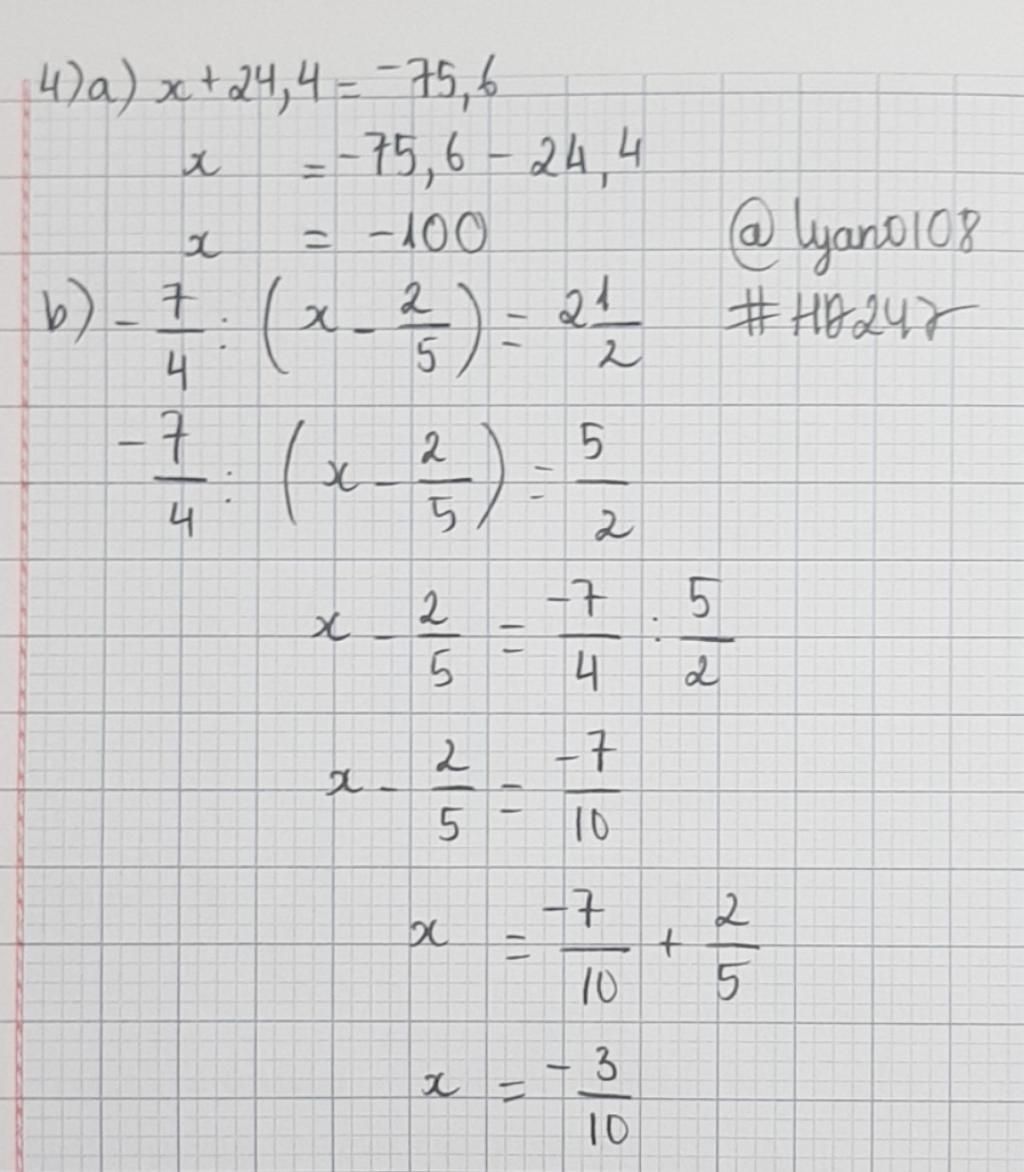 4)a) x + 24,4 = -75,6
x = -75,6 - 24,4
x = -100
@lyan0108
b) - 7/4 : (x - 2/5) = 2 1/2
#HD247
-7/4 : (x - 2/5) = 5/2
x - 2/5 = -7/4 : 5/2
x - 2/5 = -7/10
x = -7/10 + 2/5
x = -3/10